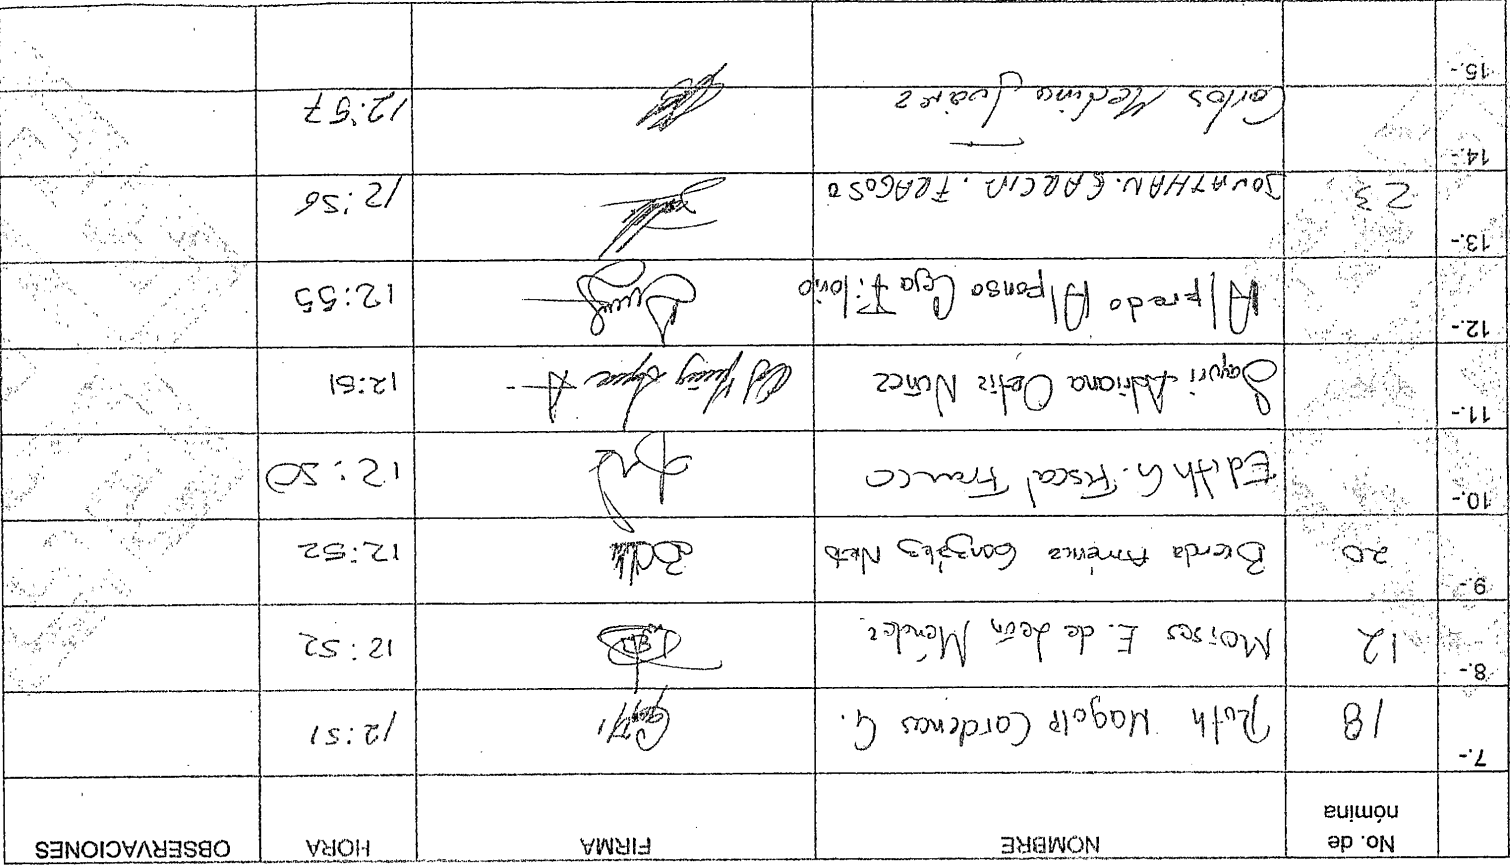 No. de nómina NOMBRE FIRMA HORA OBSERVACIONES
7.- 18 Ruth Magole Cardenas G. 12:51
8.- 12 Moises E. de León Méndez 12:52
9.- 20 Brenda América González Nieto 12:52
10.- Edith G. Fiscal Franco 12:50
11.- Sayuri Adriana Ortiz Núñez 12:51
12.- Alfredo Alfonso Ceja Tilovio 12:55
13.- 23 JONATHAN. GARCIA. FRAGOSO 12:56
14.- Carlos Medina Juárez 12:57
15.-